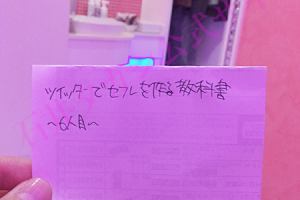 ツイッターでセフレを作る教科書
〜6人目〜